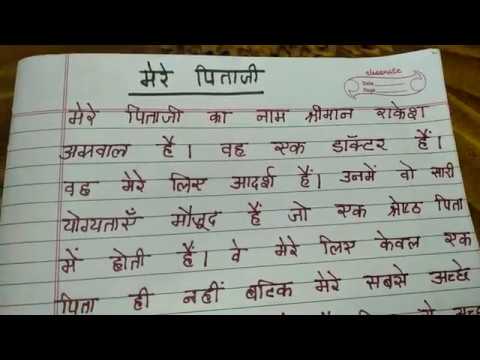 मेरे पिताजी
classmate
Date
Page
मेरे पिताजी का नाम श्रीमान राकेश
अग्रवाल है। वह एक डॉक्टर हैं।
वह मेरे लिए आदर्श हैं। उनमें वो सारी
योग्यताएँ मौजूद हैं जो एक श्रेष्ठ पिता
में होती हैं। वे मेरे लिए केवल एक
पिता ही नहीं बल्कि मेरे सबसे अच्छे